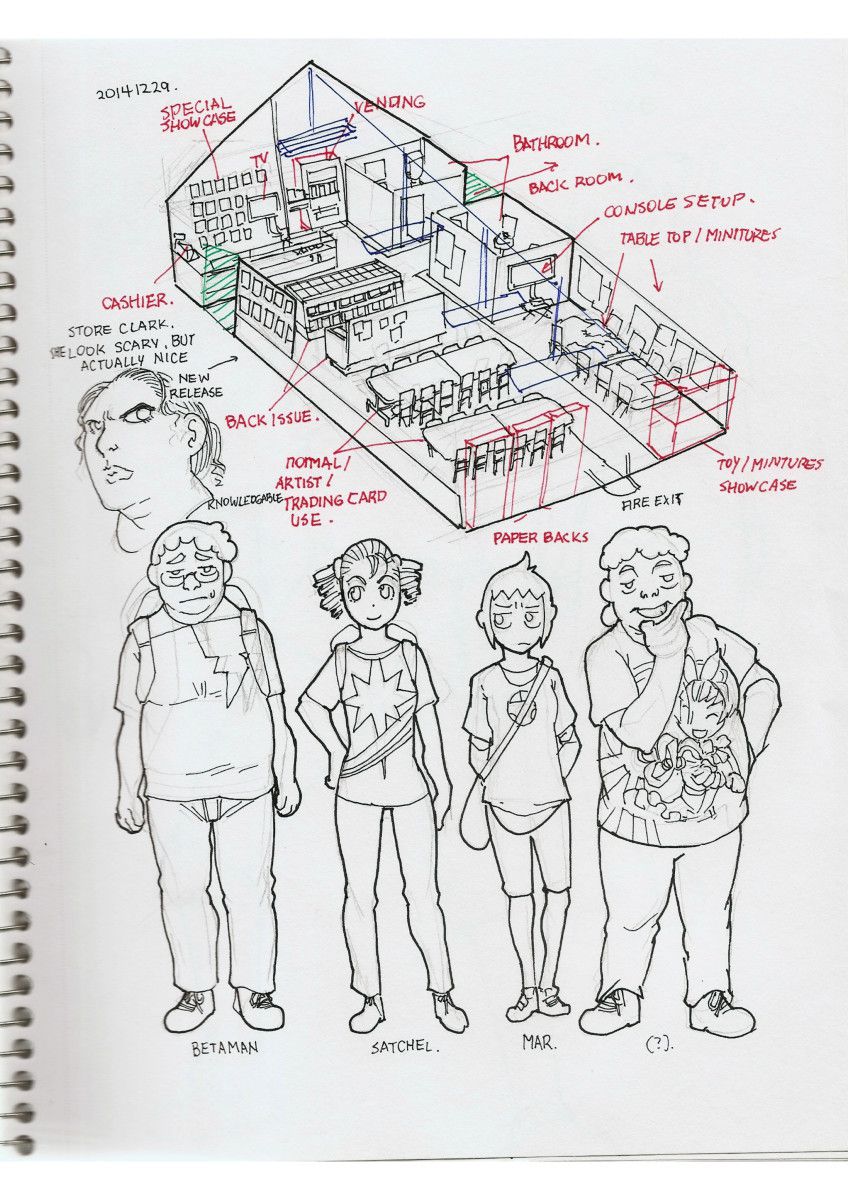 20141229.
SPECIAL
SHOWCASE
VENDING
TV
BATHROOM.
BACK ROOM.
CONSOLE SETUP.
TABLE TOP / MINITURES
CASHIER.
STORE CLARK.
SHE LOOK SCARY, BUT
ACTUALLY NICE
NEW
RELEASE
BACK ISSUE.
KNOWLEDGABLE
NORMAL /
ARTIST /
TRADING CARD
USE.
PAPER BACKS
FIRE EXIT
TOY / MINTURES
SHOWCASE
BETAMAN
SATCHEL.
MAR.
(?).